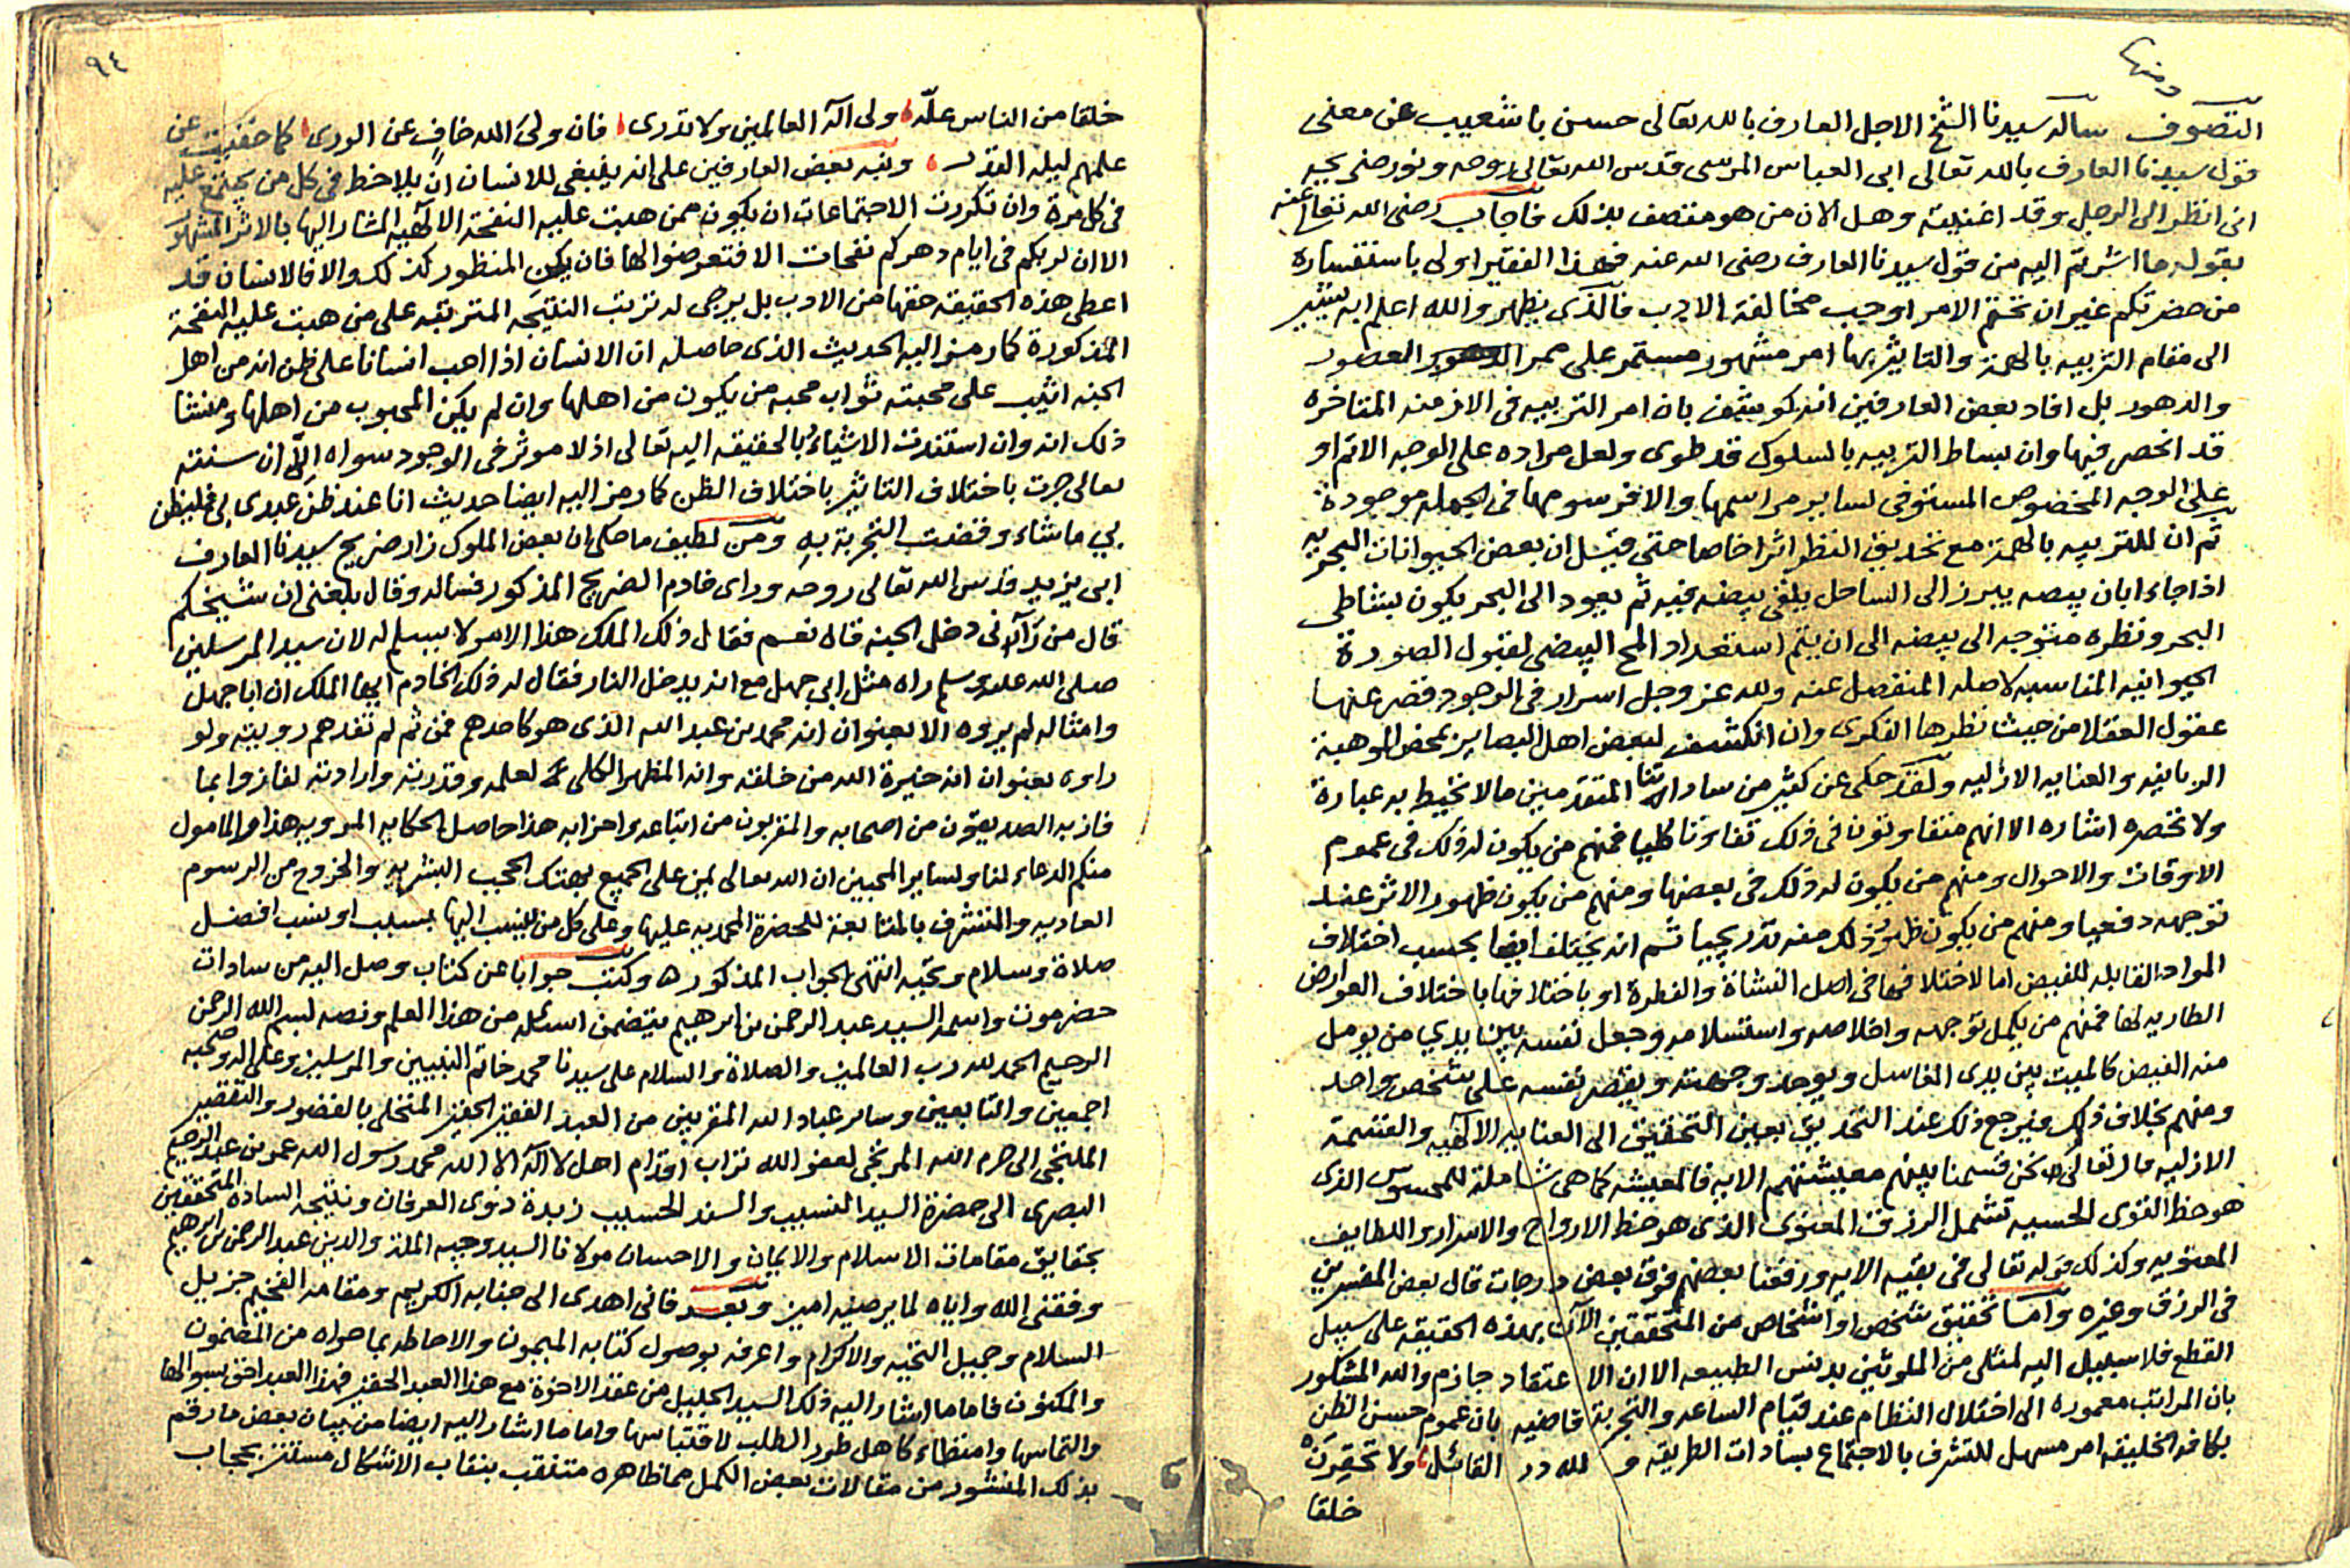 ومنها
التصوف سأله سيدنا الشيخ الاجل العارف بالله تعالى حسن باشعيب عن معنى
قول سيدنا العارف بالله تعالى ابى العباس المرسى قدس الله تعالى روحه ونور ضريحه
انى انظر الى الرجل وقد اغنيته وهل الان من هو متصف بذلك فاجاب رضى الله تعالى عنه
بقوله ما اشرتم اليه من قول سيدنا العارف رضى الله عنه فهذا الفقير اولى باستفساره
من حضرتكم غير ان تحتم الامر اوجب مخالفة الادب فالذى يظهر والله اعلم انه يشير
الى مقام التربيه بالهمة والتاثير بها امر مشهور مستمر على ممر العصور
والدهور بل افاد بعض العارفين انه كوشف بان امر التربيه فى الازمنه المتاخره
قد انحصر فيها وان بساط التربيه بالسلوك قد طوى ولعل مراده على الوجه الاتم او
على الوجه المخصوص المستوفى لساير مراسمها والا فرسومها فى الجمله موجودة
ثم ان للتربيه بالهمة مع تحديق النظر اثرا خاصا حتى قيل ان بعض الحيوانات البحريه
اذا جاء ابان بيضه يبرز الى الساحل يلقى بيضه فيه ثم يعود الى البحر يكون بشاطى
البحر ونظره متوجه الى بيضه الى ان يتم استعداد المح البيضى لقبول الصورة
الحيوانيه المناسبه لاصله المنفصل عنه ولله عز وجل اسرار فى الوجود قصر عنها
عقول العقلا من حيث نظرها الفكرى وان انكشف لبعض اهل البصاير بمحض الموهبة
الربانيه والعنايه الازليه ولقد حكى عن كثير من ساداتنا المتقدمين مالا تحيط به عبارة
ولا تحصره اشاره الا انهم متفاوتون فى ذلك تفاوتا كليا فمنهم من يكون له ذلك فى عموم
الاوقات والاحوال ومنهم من يكون له ذلك فى بعضها ومنهم من يكون ظهور الاثر عند
توجهه دفعيا ومنهم من يكون ظهور ذلك منه تدريجيا ثم انه يختلف ايضا بحسب اختلاف
المواد القابله للفيض اما لاختلافها فى اصل النشاة والفطرة او باختلافها باختلاف العوارض
الطاريه لها فمنهم من يكمل توجهه واخلاصه واستسلامه وجعل نفسه بين يدي من يومل
منه الفيض كالميت بين يدى الغاسل ويوحد وجهته ويقصر نفسه على شخص واحد
ومنهم بخلاف ذلك فيرجع ذلك عند التحديق بعين التحقيق الى العنايه الالهيه والقسمة
الازليه قال تعالى نحن قسمنا بينهم معيشتهم الايه فالمعيشه كما هى شاملة للمحسوس الذى
هو حظ القوى الحسيه تشمل الرزق المعنوى الذى هو حظ الارواح والاسرار واللطايف
المعنويه وكذلك قوله تعالى فى بقيه الايه ورفعنا بعضهم فوق بعض درجات قال بعض المفسرين
فى الرزق وغيره واما تحقيق شخص او اشخاص من المتحققين الآن بهذه الحقيقه على سبيل
القطع فلا سبيل اليه لمثلى من الملوثين بدنس الطبيعه الا ان الاعتقاد جازم والله المشكور
بان المراتب معموره الى اختلال النظام عند قيام الساعه والتجربة قاضيه بان عموم حسن الظن
بكافه الخليقه امر مسهل للتشرف بالاجتماع بسادات الطريقه ولله در القائل ولا تحقرن
خلقا
٩٤
خلقا من الناس علّه ولى اله العالمين ولا تدرى فان ولى الله خافٍ عن الورى كما خفيت عن
علمهم ليله القدر ونبه بعض العارفين على انه ينبغى للانسان ان يلاحظ فى كل من يجتمع عليه
فى كل مرة وان تكررت الاجتماعات ان يكون ممن هبت عليه النفحة الالهيه المشار اليها بالاثر المشهور
الا ان لربكم فى ايام دهركم نفحات الا فتعرضوا لها فان يكن المنظور كذلك والا فالانسان قد
اعطى هذه الحقيقه حقها من الادب بل يرجى له ترتب النتيجه المترتبه على من هبت عليه النفحة
المذكورة كما رمز اليه الحديث الذى حاصله ان الانسان اذا احب انسانا على ظن انه من اهل
الجنه اثيب على محبته ثواب محبه من يكون من اهلها وان لم يكن المحبوب من اهلها ومنشا
ذلك انه وان استندت الاشياء بالحقيقه اليه تعالى اذ لا موثر فى الوجود سواه الّا ان سنته
تعالى جرت باختلاف التاثير باختلاف الظن كما رمز اليه ايضا حديث انا عند ظن عبدى بى فليظن
بي ما شاء وقضت التجربة به ومن لطيف ما حكى ان بعض الملوك زار ضريح سيدنا العارف
ابى يزيد قدس الله تعالى روحه وراى خادم الضريح المذكور فساله وقال بلغنى ان شيخكم
قال من رآنى دخل الجنه قال نعم فقال ذلك الملك هذا الامر لا يسلم له لان سيد المرسلين
صلى الله عليه وسلم راه مثل ابي جهل مع انه يدخل النار فقال له ذلك الخادم ايها الملك ان ابا جهل
وامثاله لم يروه الا بعنوان انه محمد بن عبد الله الذى هو كاحدهم فمن ثم لم تفدهم رويته ولو
راوه بعنوان انه خيرة الله من خلقه وانه المظهر الكلى لعلمه وقدرته وارادته لفازوا بما
فاز به الصديقون من اصحابه والمقربون من اتباعه واحزابه هذا حاصل الحكايه المرويه هذا والمامول
منكم الدعاء لنا ولساير المحبين ان الله تعالى يمن على الجميع بهتك الحجب البشريه والخروج من الرسوم
العاديه والتشرف بالمتابعة للحضرة المحمديه عليها وعلى كل من ينسب اليها بسبب او نسب افضل
صلاة وسلام وتحيه انتهى الجواب المذكور ه وكتب جوابا عن كتاب وصل اليه من سادات
حضرموت واسمه السيد عبد الرحمن بن ابرهيم يتضمن اسئله من هذا العلم ونصه بسم الله الرحمن
الرحيم الحمد لله رب العالمين والصلاة والسلام على سيدنا محمد خاتم النبيين والمرسلين وعلى اله وصحبه
اجمعين والتابعين وساير عباد الله المقربين من العبد الفقير الحقير المتحلى بالقصور والتقصير
الملتجى الى حرم الله المرتجى لعفو الله تراب اقدام اهل لا اله الا الله محمد رسول الله عمر بن عبد الرحيم
البصرى الى حضرة السيد النسيب والسند الحسيب زبدة ذوى العرفان ونتيجه الساده المتحققين
بحقايق مقامات الاسلام والايمان والاحسان مولانا السيد وجيه الملة والدين عبد الرحمن بن ابرهيم
وفقنى الله واياه لما يرضيه امين وبعد فانى اهدى الى جنابه الكريم ومقامه الفخيم جزيل
السلام وجميل التحيه والاكرام واعرفه بوصول كتابه الميمون والاحاطه بما حواه من المضمون
والمكنون فاما ما اشار اليه ذلك السيد الجليل من عقد الاخوة مع هذا العبد الحقير فهذا العبد احق بسوالها
والتماسها وامتطاء كاهل طور الطلب لاقتباسها واما ما اشار اليه ايضا من بيان بعض ما رقم
بذلك المنشور من مقالات بعض الكمل مما ظاهره متنقب بنقاب الاشكال مستتر بحجاب